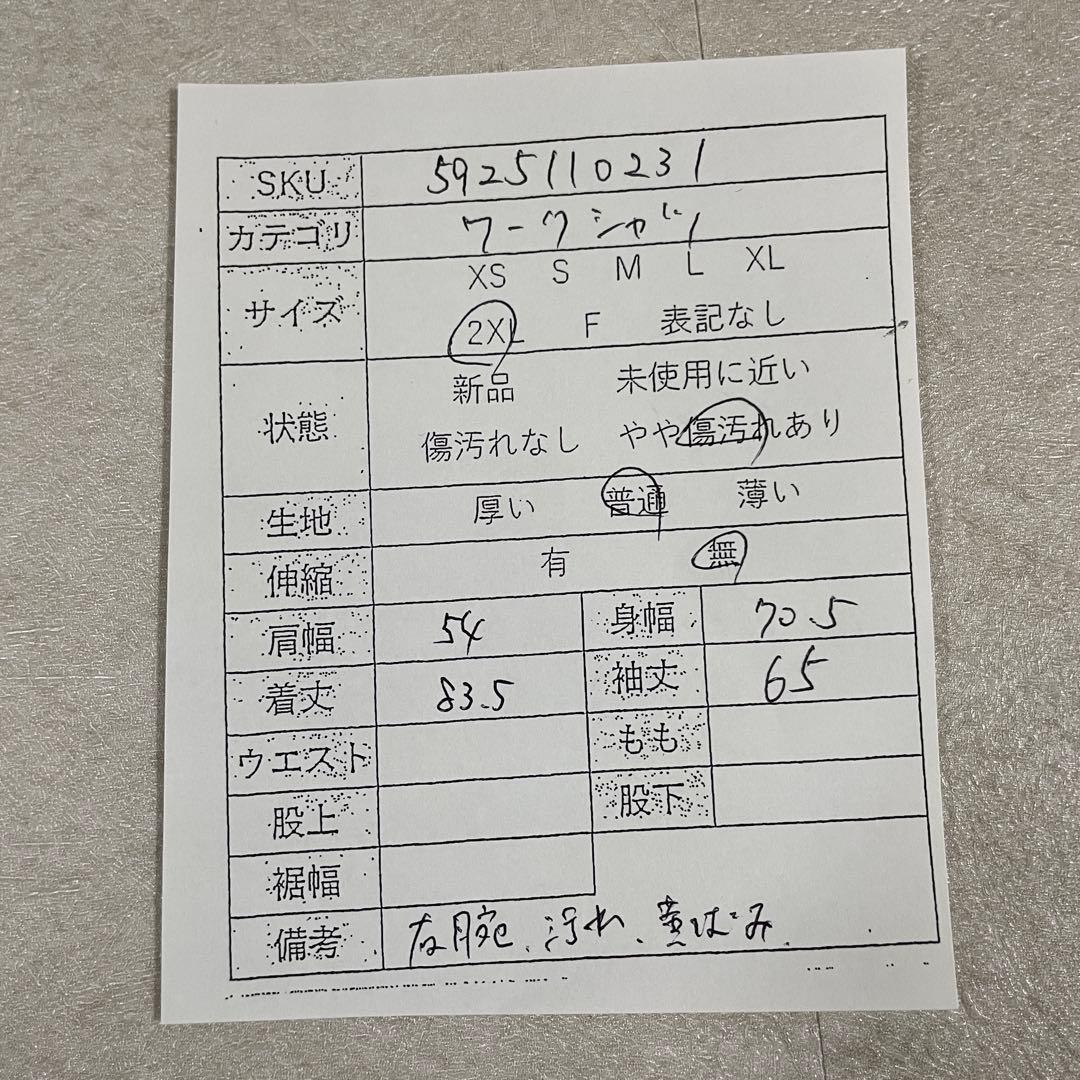 SKU 5925110231
カテゴリ ワークシャツ
サイズ XS S M L XL
2XL F 表記なし
状態 新品 未使用に近い
傷汚れなし やや傷汚れあり
生地 厚い 普通 薄い
伸縮 有 無
肩幅 54 身幅 70.5
着丈 83.5 袖丈 65
ウエスト もも
股上 股下
裾幅
備考 右腕、汚れ、黄ばみ